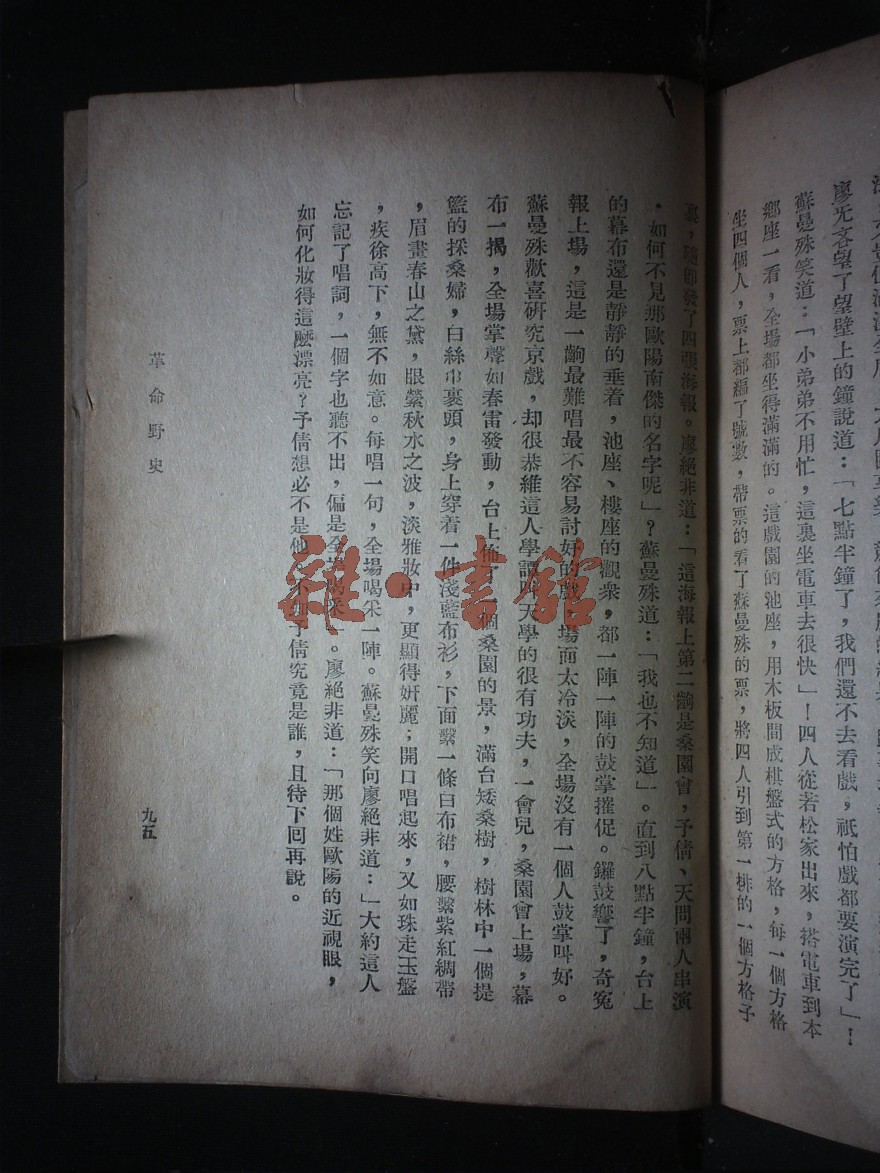 廖无客望了望壁上的鐘說道：「七點半鐘了，我們還不去看戲，祇怕戲都要演完了」！
蘇曼殊笑道：「小弟弟不用忙，這裏坐電車去很快」！四人從若松家出來，搭電車到本
鄉座一看，全場都坐得滿滿的。這戲園的池座，用木板間成棋盤式的方格，每一個方格
坐四個人，票上都編了號數，帶票的看了蘇曼殊的票，將四人引到第一排的一個方格子
裏，隨卽發了四張海報。廖絕非道：「這海報上第二齣是桑園會，予倩、天問兩人串演
，如何不見那歐陽南傑的名字呢」？蘇曼殊道：「我也不知道」。直到八點半鐘，台上
的幕布還是靜靜的垂着，池座、樓座的觀衆，都一陣一陣的鼓掌摧促。鑼鼓響了，奇冤
報上場，這是一齣最難唱最不容易討好的戲，場面太冷淡，全場沒有一個人鼓掌叫好。
蘇曼殊歡喜研究京戲，却很恭維這人學譚叫天學的很有功夫，一會兒，桑園會上場，幕
布一揭，全場掌聲如春雷發動，台上佈了一個桑園的景，滿台矮桑樹，樹林中一個提
籃的採桑婦，白絲巾裹頭，身上穿着一件淺藍布衫，下面繫一條白布裙，腰繫紫紅綢帶
，眉畫春山之黛，眼縈秋水之波，淡雅妝中，更顯得姸麗；開口唱起來，又如珠走玉盤
，疾徐高下，無不如意。每唱一句，全場喝采一陣。蘇曼殊笑向廖絕非道：」大約這人
忘記了唱詞，一個字也聽不出，偏是全場喝采」。廖絕非道：「那個姓歐陽的近視眼，
如何化妝得這麼漂亮？予倩想必不是他」不知予倩究竟是誰，且待下回再說。
革命野史
九五
雜·書館